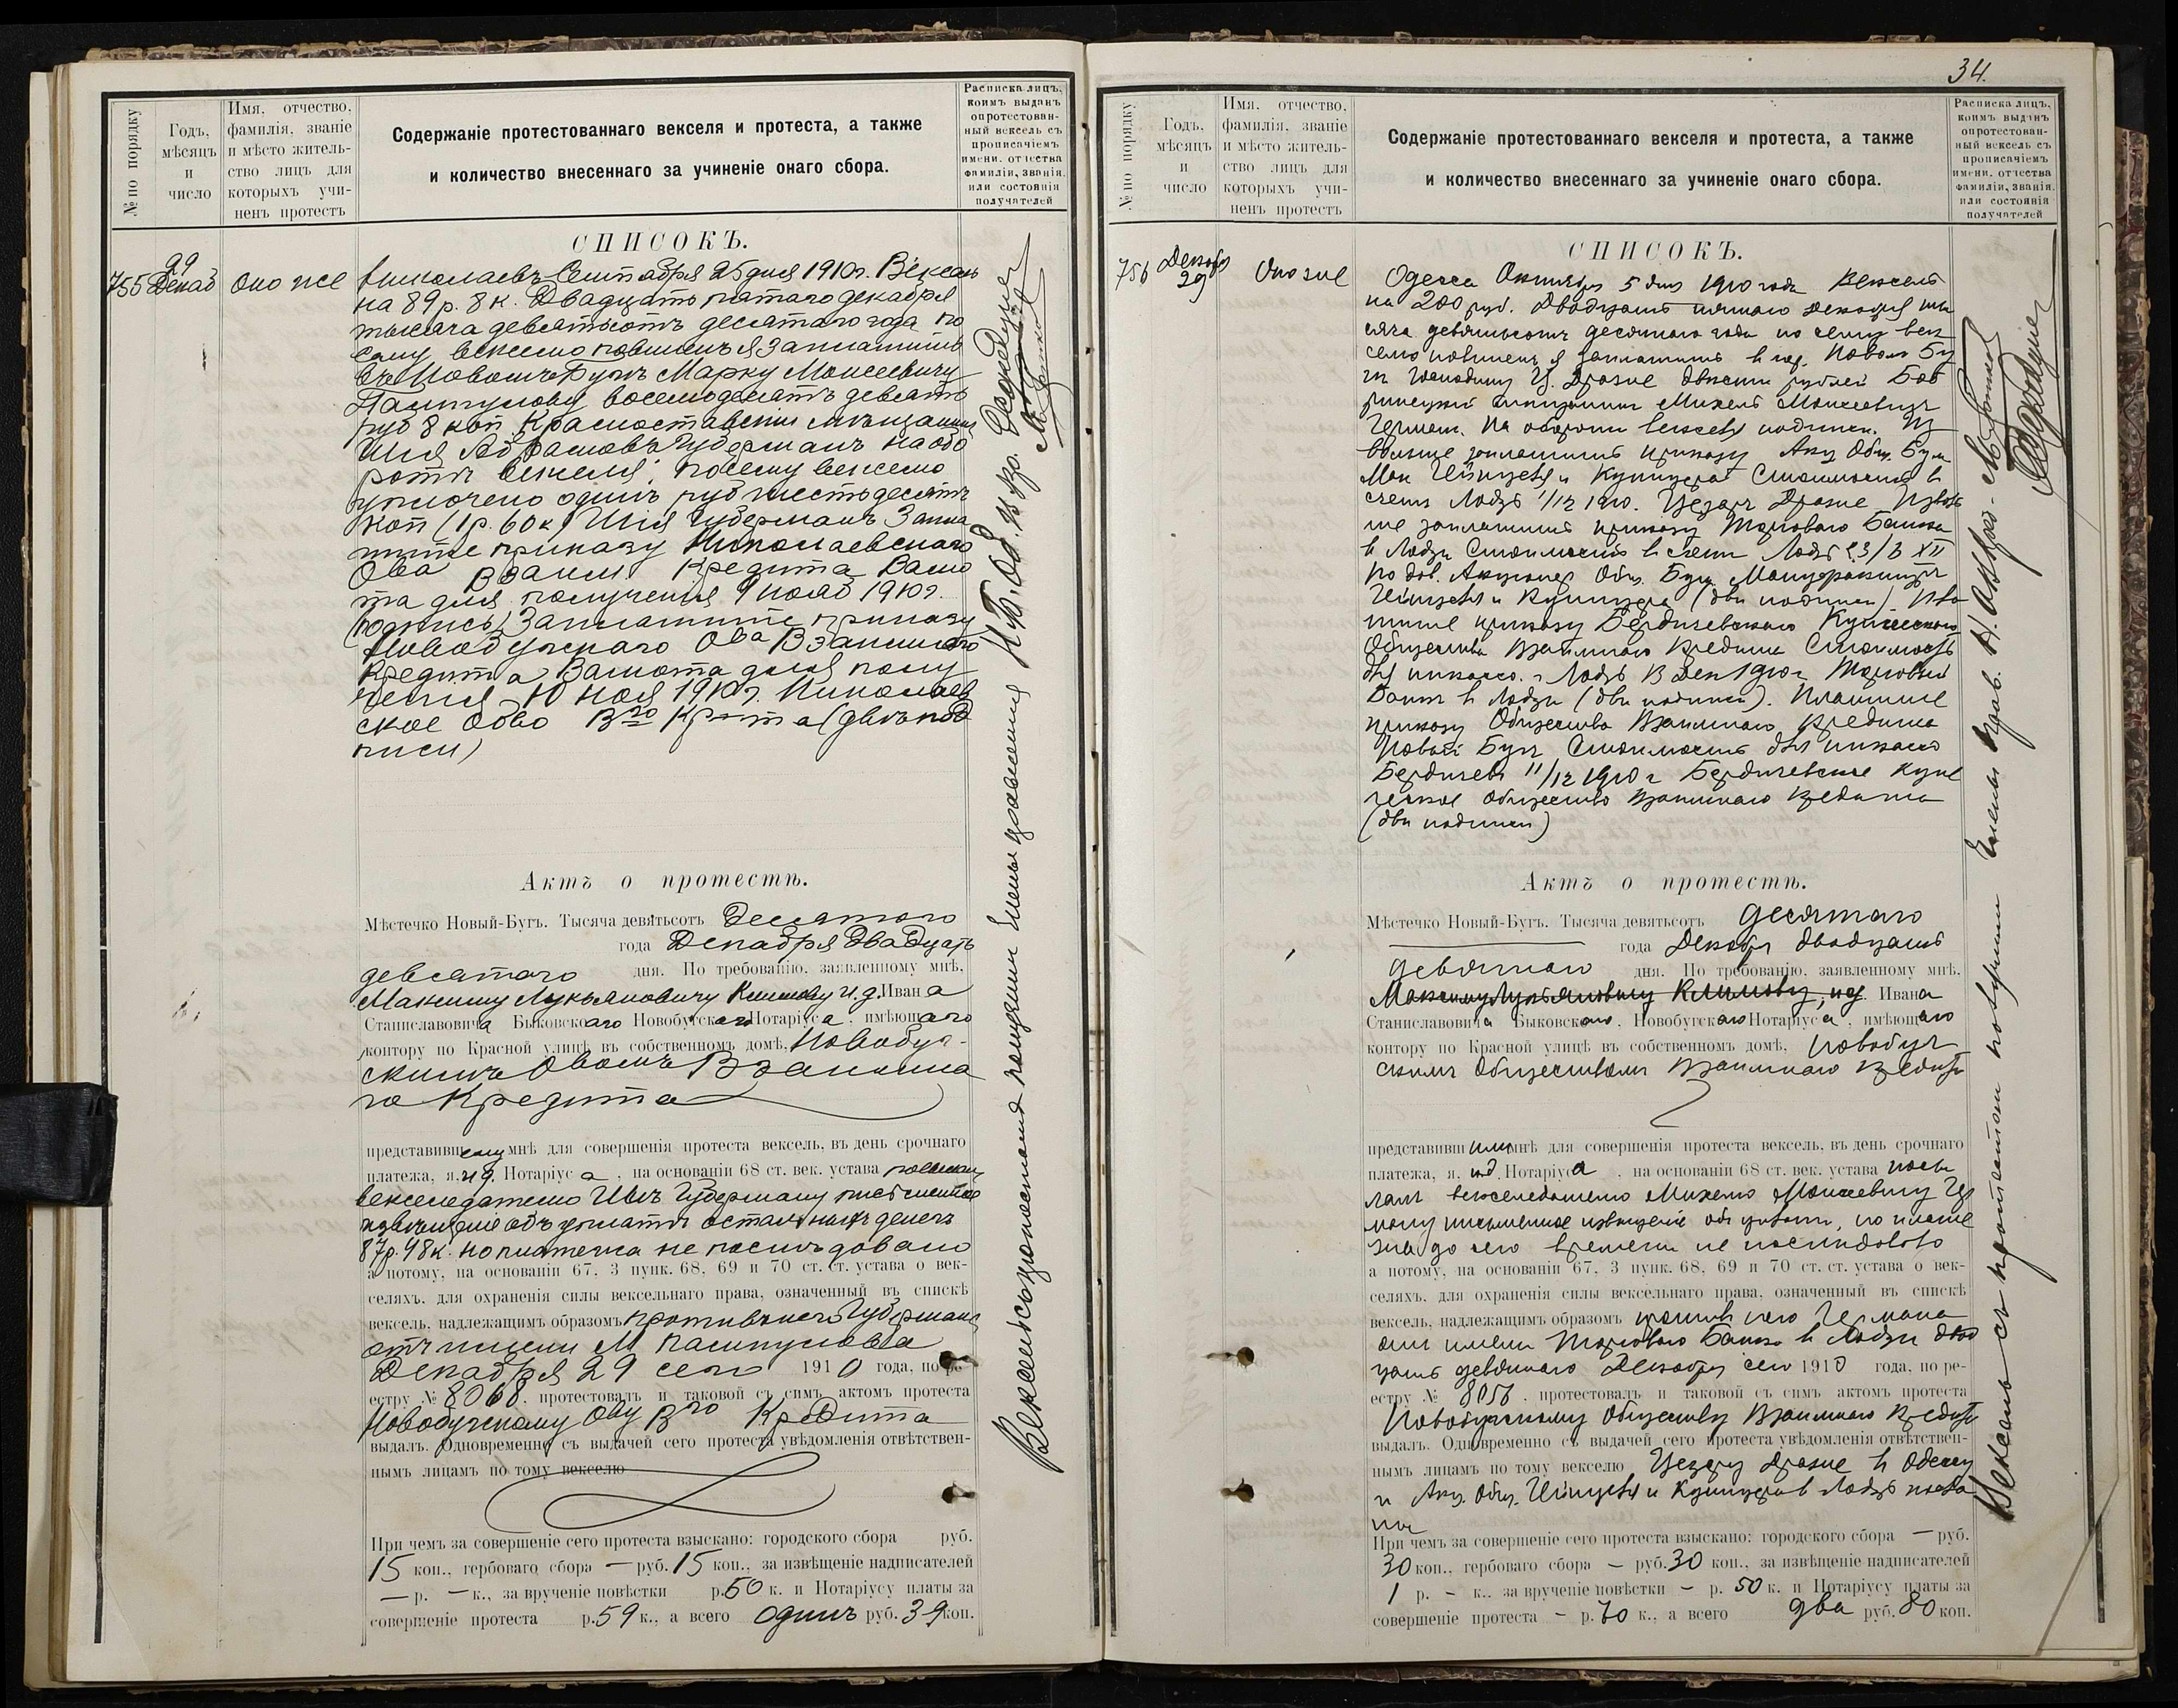 № по порядку
Годъ,
мѣсяцъ
и
число
Имя, отчество,
фамилія, званіе
и мѣсто житель-
ство лицъ для
которыхъ учи-
ненъ протестъ
Содержаніе протестованнаго векселя и протеста, а также
и количество внесеннаго за учиненіе онаго сбора.
Росписка лицъ,
коимъ выданъ
опротестован-
ный вексель съ
прописаніемъ
имени, отчества
фамиліи, званія,
или состоянія
получателей
СПИСОКЪ.
755
29
Декаб
Оно же
Николаевъ Сентября 25 дня 1910 г. Вексель
на 89 р. 8 к. Двадцать пятаго декабря
тысяча девятьсотъ десятаго года по
сему векселю повиненъ я заплатить
въ Новомъ-Бугѣ Марку Моисеевичу
восемьдесятъ девять
руб 8 коп
Губерманъ на обо
ротѣ векселя: По сему векселю
уплочено одинъ руб шестьдесятъ
коп (1 р. 60 к) Шія Губерманъ Запла
тите приказу Николаевскаго
Ова Взаим Кредита Валю
та для полученія 9 нояб 1910 г.
(подпись) Заплатите приказу
Новобугскаго Ова Взаимнаго
Кредита Валюта для полу
ченія 10 ноя 1910 г. Николаев
ское Обво Вго Крдита (двѣ под
писи)
Актъ о протестѣ.
Мѣстечко Новый-Бугъ. Тысяча девятьсотъ Десятаго
года Декабря Двадцать
девятаго дня. По требованію, заявленному мнѣ,
Максиму Лукьяновичу Климову и.д. Ивана
Станиславовича Быковскаго Новобугскаго Нотаріуса, имѣющаго
контору по Красной улицѣ въ собственномъ домѣ, Новобуг-
скимъ Овомъ Взаимна
го Кредита
представившему мнѣ для совершенія протеста вексель, въ день срочнаго
платежа, я, и.д. Нотаріуса, на основаніи 68 ст. век. устава посылалъ
векселедателю Шіѣ Губерману письменное
извѣщеніе объ уплатѣ остальныхъ денегъ
87 р. 48 к. но платежа не послѣдовало
а потому, на основаніи 67, 3 пунк. 68, 69 и 70 ст. ст. устава о век-
селяхъ, для охраненія силы вексельнаго права, означенный въ спискѣ
вексель, надлежащимъ образомъ противъ него Губермана
отъ имени М.
Декабря 29 сего 1910 года, по ре-
естру № 8068, протестовалъ и таковой съ симъ актомъ протеста
Новобугскому Ову Вго Кредита
выдалъ. Одновременно съ выдачей сего протеста увѣдомленія отвѣтствен-
нымъ лицамъ по тому векселю
При чемъ за совершеніе сего протеста взыскано: городского сбора руб.
15 коп., гербоваго сбора — руб. 15 коп., за извѣщеніе надписателей
— р. — к., за врученіе повѣстки р. 50 к. и Нотаріусу платы за
совершеніе протеста р. 59 к., а всего одинъ руб. 39 коп.
34.
№ по порядку
Годъ,
мѣсяцъ
и
число
Имя, отчество,
фамилія, званіе
и мѣсто житель-
ство лицъ для
которыхъ учи-
ненъ протестъ
Содержаніе протестованнаго векселя и протеста, а также
и количество внесеннаго за учиненіе онаго сбора.
Росписка лицъ,
коимъ выданъ
опротестован-
ный вексель съ
прописаніемъ
имени, отчества
фамиліи, званія,
или состоянія
получателей
СПИСОКЪ.
756
Декабр
29
Оно же
Одесса Октября 5 дня 1910 года Вексель
на 200 руб. Двадцать пятаго Декабря ты
сяча девятьсотъ десятаго года по сему век
селю повиненъ я заплатить въ гор. Новомъ Бу
гѣ Господину Ц. двѣсти рублей Боб
ринецкій Михель Моисеевичъ
Герман. На оборотѣ векселя надписи.
заплатить приказу Акц. Общ. Бум
Ман и Стоимость въ
счетъ Лодзь 1/12 1910.
заплатить приказу Торговаго Банка
въ Лодзи Стоимость въ счетъ Лодзь 3/XII
По дов. Акціонер Общ. Бум. Мануфактуръ
(двѣ подписи)
приказу Бердичевскаго Купеческаго
Общества Взаимнаго Кредита Стоимость
для инкассо. Лодзь Дек 1910 г Торговый
Банкъ въ Лодзи (двѣ подписи). Платите
приказу Общества Взаимнаго Кредита
Новый Бугъ Стоимость для инкассо
Бердичевъ 11/12 1910 г Бердичевское Купе
ческое Общество Взаимнаго Кредита
(двѣ подписи)
Актъ о протестѣ.
Мѣстечко Новый-Бугъ. Тысяча девятьсотъ десятаго
года Декабря двадцать
девятаго дня. По требованію, заявленному мнѣ,
Максиму Лукьяновичу Климову, и.д. Ивана
Станиславовича Быковскаго, Новобугскаго Нотаріуса, имѣющаго
контору по Красной улицѣ въ собственномъ домѣ, Новобуг
скимъ Обществомъ Взаимнаго Кредита
представившимъ мнѣ для совершенія протеста вексель, въ день срочнаго
платежа, я, и.д. Нотаріуса, на основаніи 68 ст. век. устава посы
лалъ векселедателю Михелю Моисеевичу Гер
ману письменное извѣщеніе объ уплатѣ, но плате
жа до сего времени не послѣдовало
а потому, на основаніи 67, 3 пунк. 68, 69 и 70 ст. ст. устава о век-
селяхъ, для охраненія силы вексельнаго права, означенный въ спискѣ
вексель, надлежащимъ образомъ противъ него Германа
отъ имени Торговаго Банка въ Лодзи два
дцать девятаго Декабря сего 1910 года, по ре-
естру № 8056, протестовалъ и таковой съ симъ актомъ протеста
Новобугскому Обществу Взаимнаго Кредита
выдалъ. Одновременно съ выдачей сего протеста увѣдомленія отвѣтствен-
нымъ лицамъ по тому векселю въ Одессу
и Акц. Общ. въ Лодзь посла
ны
При чемъ за совершеніе сего протеста взыскано: городского сбора — руб.
30 коп., гербоваго сбора — руб. 30 коп., за извѣщеніе надписателей
1 р. — к., за врученіе повѣстки — р. 50 к. и Нотаріусу платы за
совершеніе протеста — р. 70 к., а всего два руб. 80 коп.
Вексель съ протестомъ получили Члены Прав.